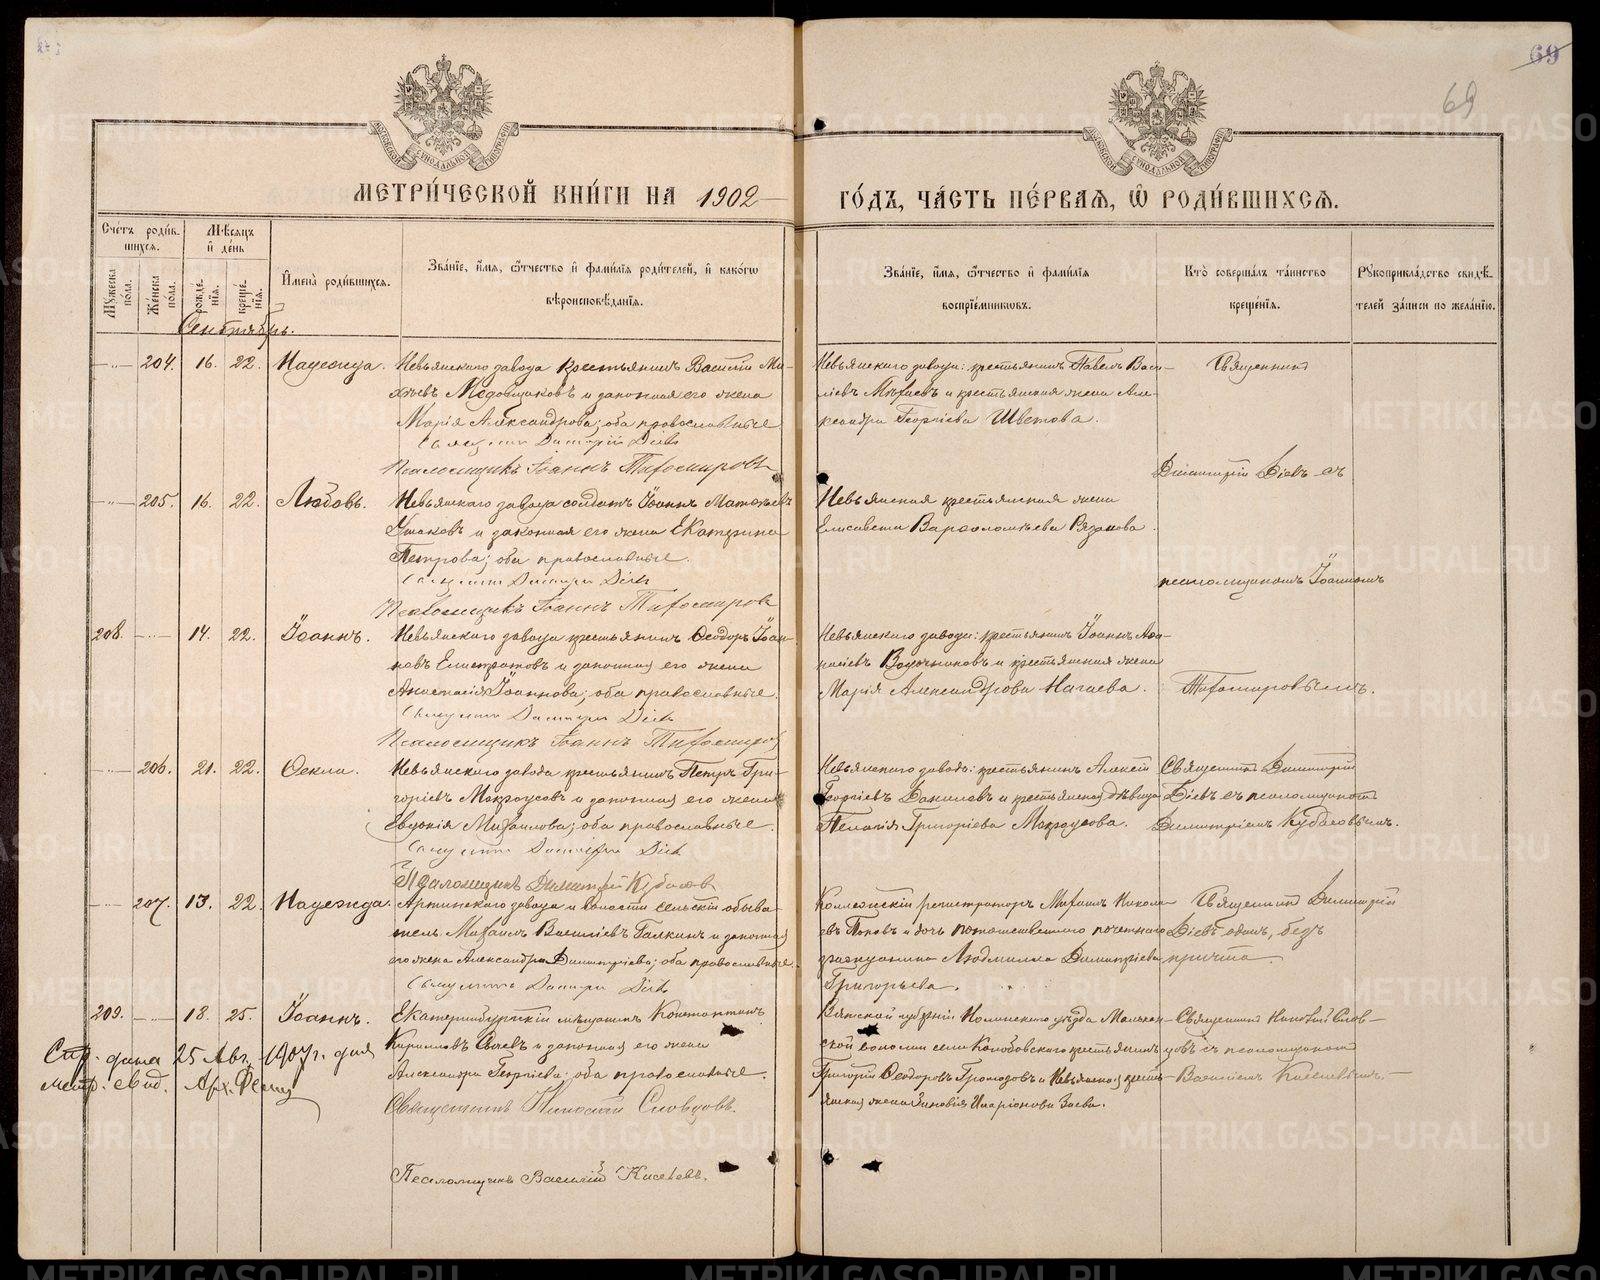 69
69
МОСКОВСКОЙ СѴНОДАЛЬНОЙ ТИПОГРАФІИ
МОСКОВСКОЙ СѴНОДАЛЬНОЙ ТИПОГРАФІИ
МЕТРИ́ЧЕСКОЙ КНИ́ГИ НА 1902
ГО́ДЪ, ЧА́СТЬ ПЕ́РВАѦ, Ѽ РОДИ́ВШИХСѦ.
Сче́тъ роди́вшихсѧ.
Мѣ́сѧцъ и҆ де́нь
Мꙋ́жеска по́ла.
Же́нска по́ла.
рожде́нїѧ.
креще́нїѧ.
И҆мена̀ роди́вшихсѧ.
Зва́нїе, и҆́мѧ, ѻ҆́тчество и҆ фами́лїѧ роди́телей, и҆ како́гѡ вѣроисповѣ́данїѧ.
Зва́нїе, и҆́мѧ, ѻ҆́тчество и҆ фами́лїѧ воспрїе́мниковъ.
Кто̀ соверша́лъ та́инство креще́нїѧ.
Рꙋкоприкла́дство свидѣ́телей за́писи по жела́нїю.
Сентябрь.
204. 16. 22. Надежда.
Невьянскаго завода крестьянинъ Василій Ми-
хѣевъ Медовщиковъ и законная его жена
Марія Александрова; оба православные
Священникъ Димитрій Діевъ
Псаломщикъ Іоаннъ Тихомировъ
Невьянскаго завода: крестьянинъ Павелъ Васи-
ліевъ и крестьянская жена Але-
ксандра Георгіева Швецова.
Священникъ
Димитрій Діевъ съ
псаломщикомъ Іоанномъ
Тихомировымъ.
205. 16. 22. Любовь.
Невьянскаго завода солдатъ Іоаннъ Матѳѣевъ
Ушаковъ и законная его жена Екатерина
Петрова; оба православные.
Священникъ Димитрій Діевъ
Псаломщикъ Іоаннъ Тихомировъ
Невьянская крестьянская жена
Елисавета Варѳоломѣева Рязанова
208. 14. 22. Іоаннъ.
Невьянскаго завода крестьянинъ Ѳеодоръ Іоан-
новъ Елистратовъ и законная его жена
Анастасія Іоаннова; оба православные.
Священникъ Димитрій Діевъ
Псаломщикъ Іоаннъ Тихомировъ
Невьянскаго завода: крестьянинъ Іоаннъ Аѳа-
насіевъ и крестьянская жена
Марія Александрова Нагаева.
206. 21. 22. Ѳекла.
Невьянскаго завода крестьянинъ Петръ Гри-
горіевъ Мокроусовъ и законная его жена
Евдокія Михаилова; оба православные.
Священникъ Димитрій Діевъ
Псаломщикъ Димитрій Кубасовъ
Невьянскаго завода: крестьянинъ Алексій
Георгіевъ Даниловъ и крестьянская дѣвица
Пелагія Григоріева Мокроусова.
Священникъ Димитрій
Діевъ съ псаломщикомъ
Димитріемъ Кубасовымъ.
207. 13. 22. Надежда.
Артинскаго завода и волости сельскій обыва-
тель Михаилъ Василіевъ Галкинъ и законная
его жена Александра Димитріева; оба православные.
Священникъ Димитрій Діевъ
Коллежскій регистраторъ Михаилъ Никола-
евъ Поповъ и дочь потомственнаго почетнаго
гражданина Людмилла Димитріева
Григорьева.
Священникъ Димитрій
Діевъ одинъ, безъ
причта.
209. 18. 25. Іоаннъ.
Екатеринбургскій мѣщанинъ Константинъ
Кирилловъ и законная его жена
Александра Георгіева; оба православные.
Священникъ Николай Словцовъ.
Псаломщикъ Василій Киселевъ.
Вятской губерніи Нолинскаго уѣзда
ской волости села Колобовскаго крестьянинъ
Григорій Ѳеодоровъ Громоздовъ и Невьянская кресть-
янская жена Зиновія Иларіонова Заева.
Священникъ Николай Слов-
цовъ съ псаломщикомъ
Василіемъ Киселевымъ.
Спр. дана 25 Авг. 1907 г. для
метр. свид.
METRIKI.GASO-URAL.RU